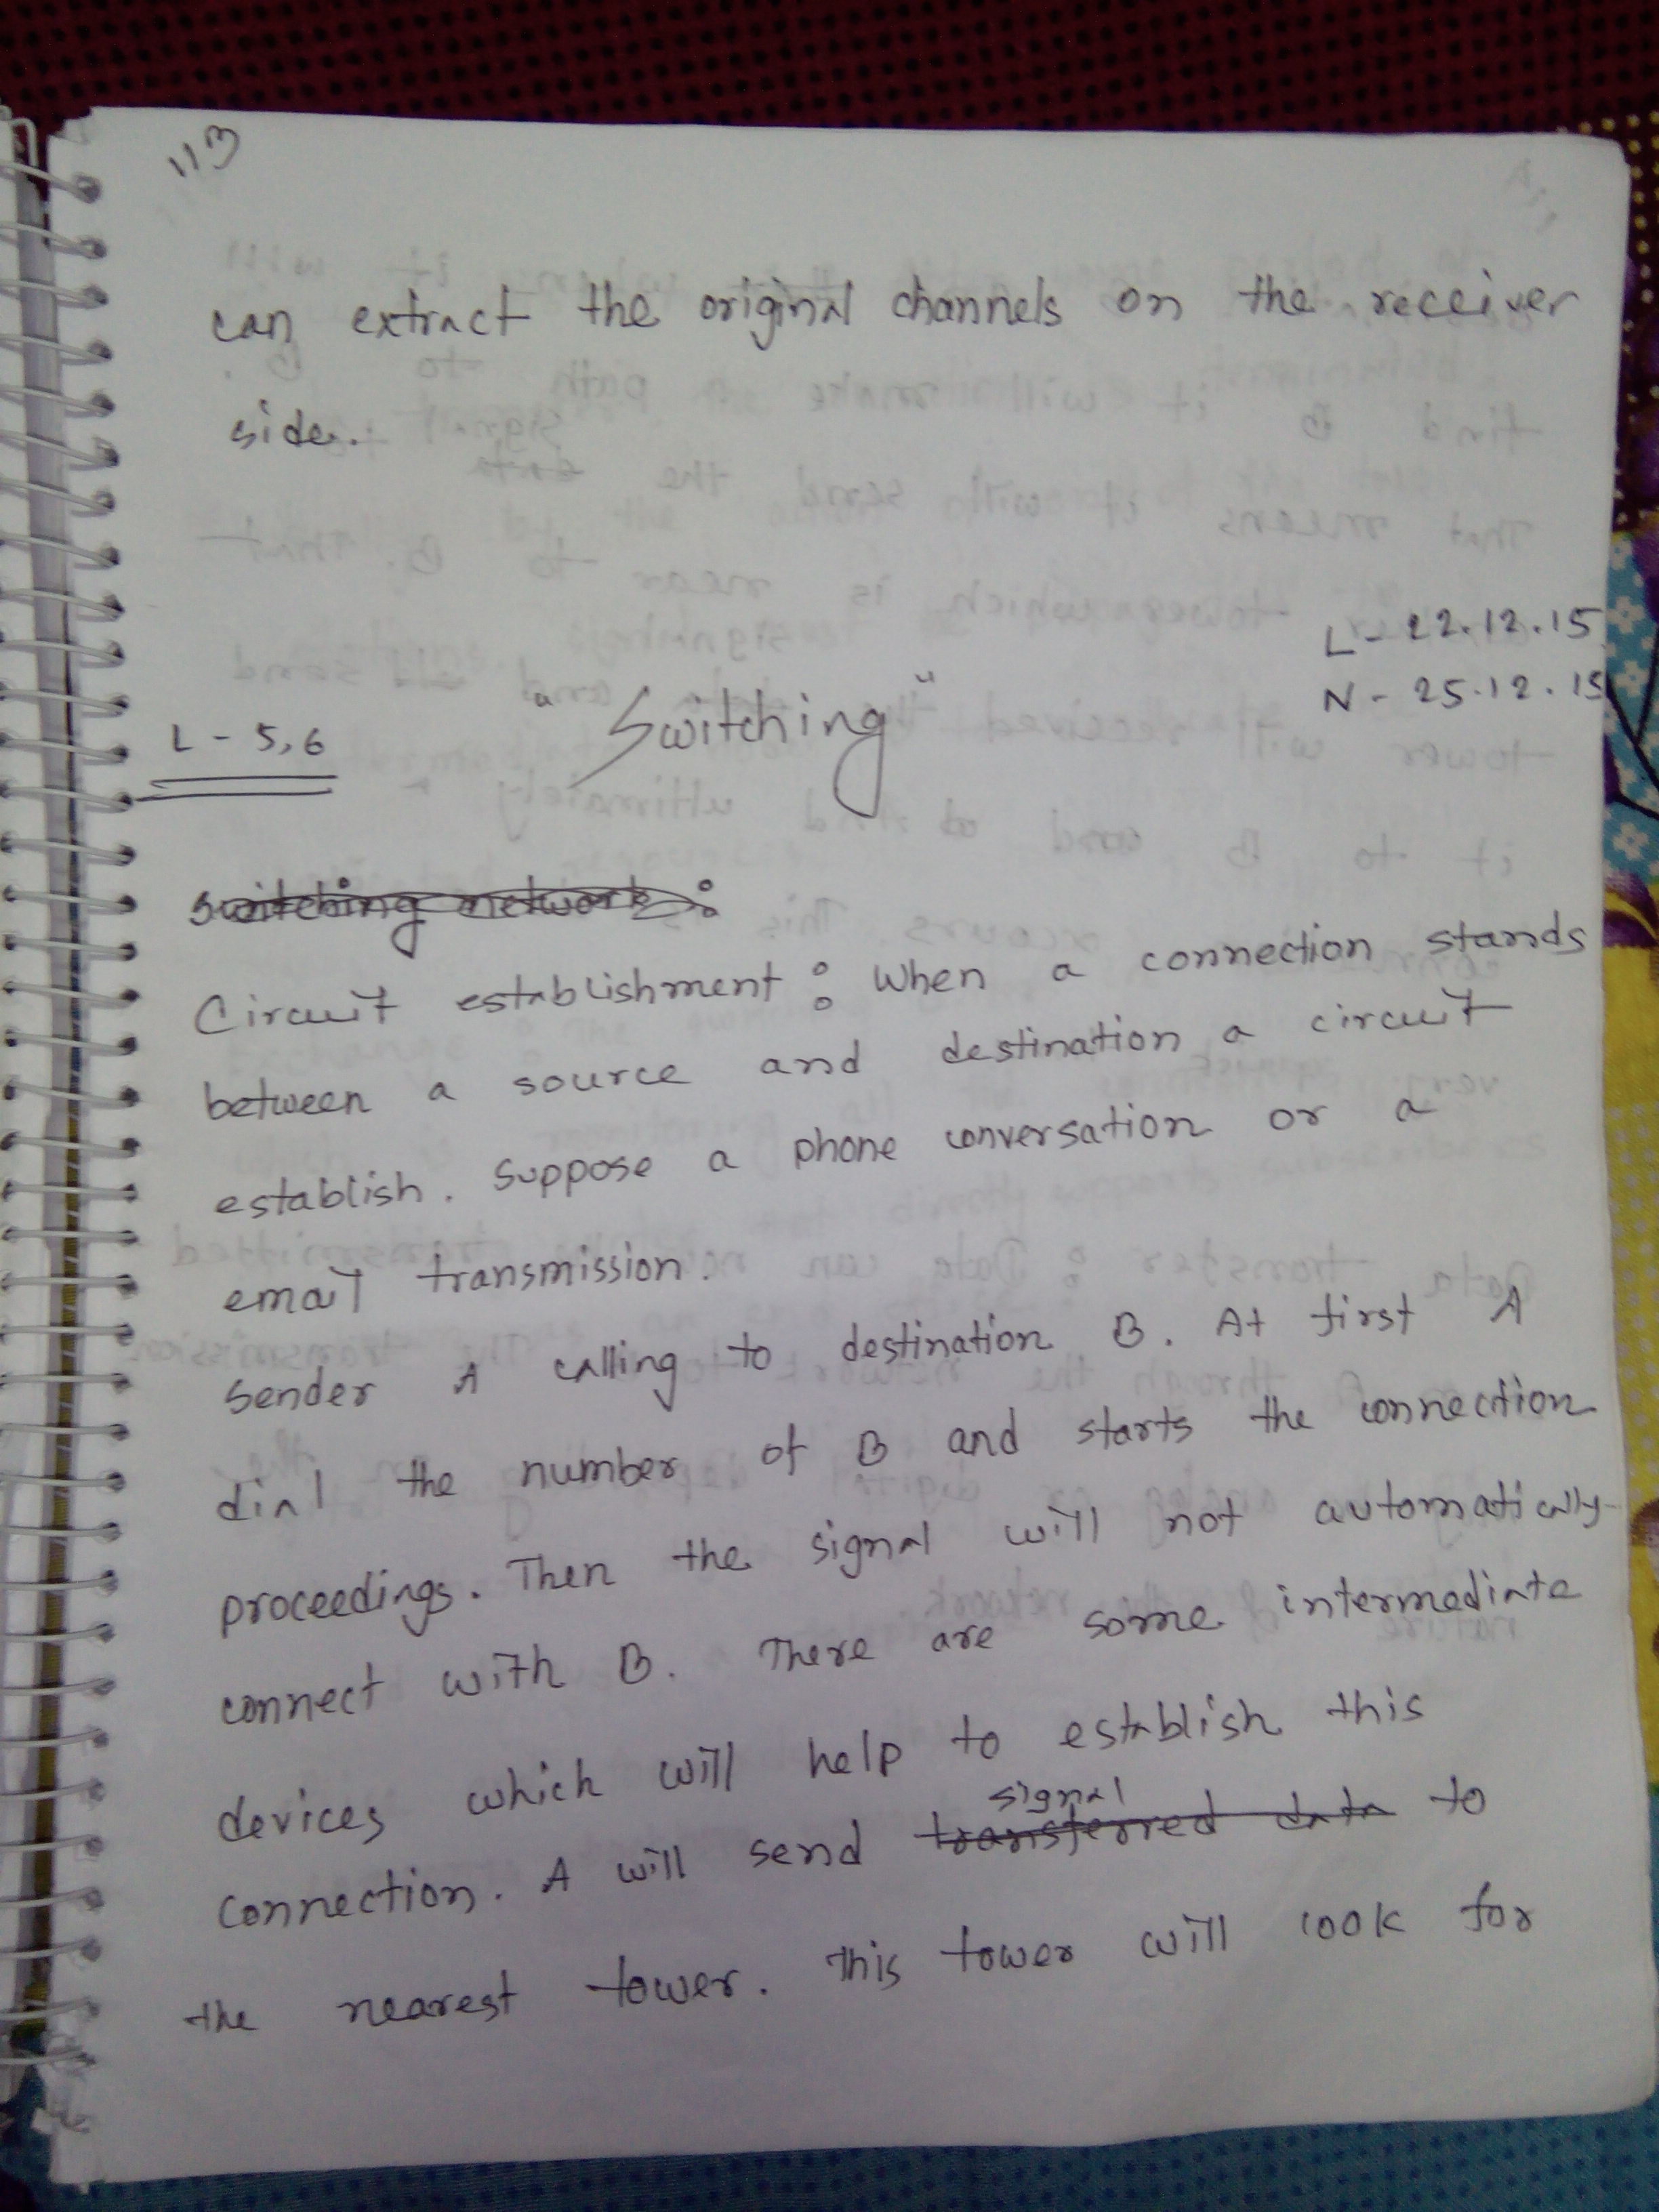 113
can extract the original channels on the receiver
side.
L - 22.12.15
N - 25.12.15
L - 5,6
"Switching"
switching network :
Circuit establishment : When a connection stands
between a source and destination a circuit
establish. Suppose a phone conversation or a
email transmission.
Sender A calling to destination B. At first A
dial the number of B and starts the connection
proceedings. Then the signal will not automatically
connect with B. There are some intermediate
devices which will help to establish this
signal
connection. A will send transferred data to
the nearest tower. This tower will look for